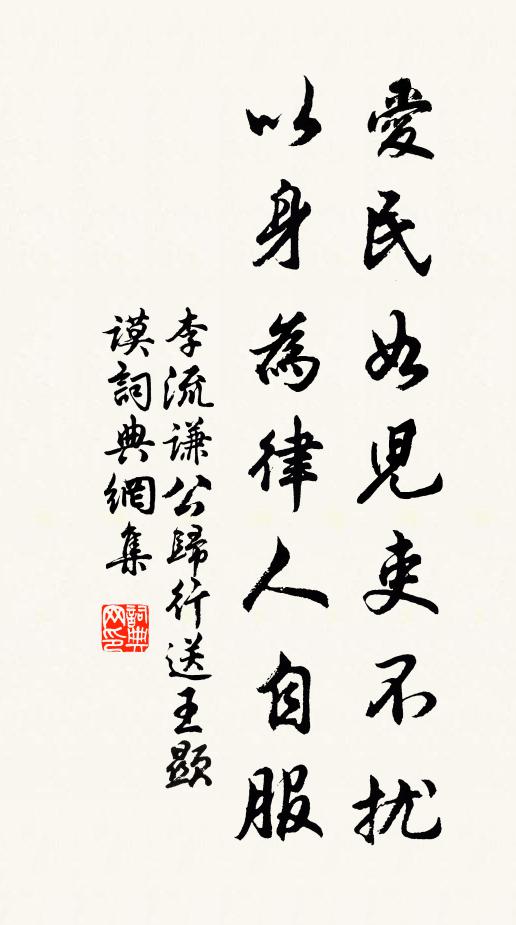 愛民如児吏不扰
以身為律人自服
李流谦公歸行送王顯
谟詞典網集
詞典網印